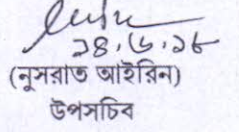 ১৪.৬.১৮
(নুসরাত আইরিন)
উপসচিব